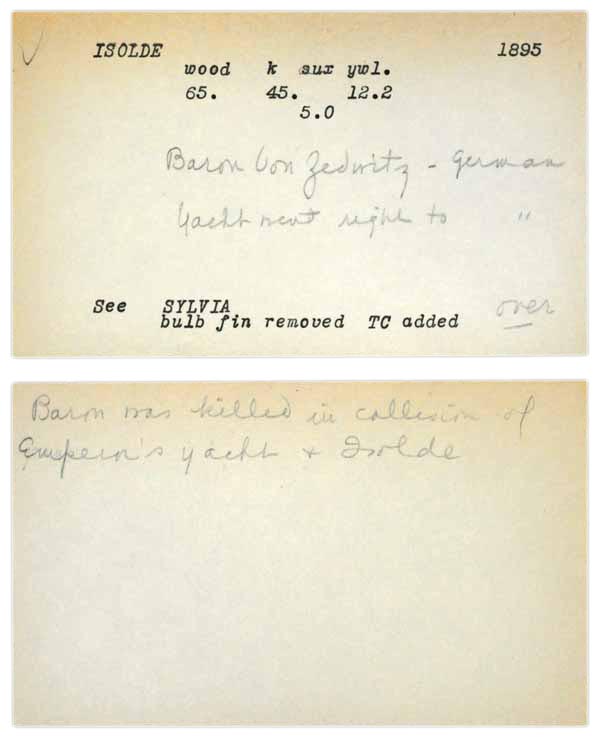 ISOLDE 1895
wood k aux ywl.
65. 45. 12.2
5.0
Baron Von Zedwitz - German
Yacht went right to "
See SYLVIA
bulb fin removed TC added over
Baron was killed in collision of
Emperor's yacht + Isolde